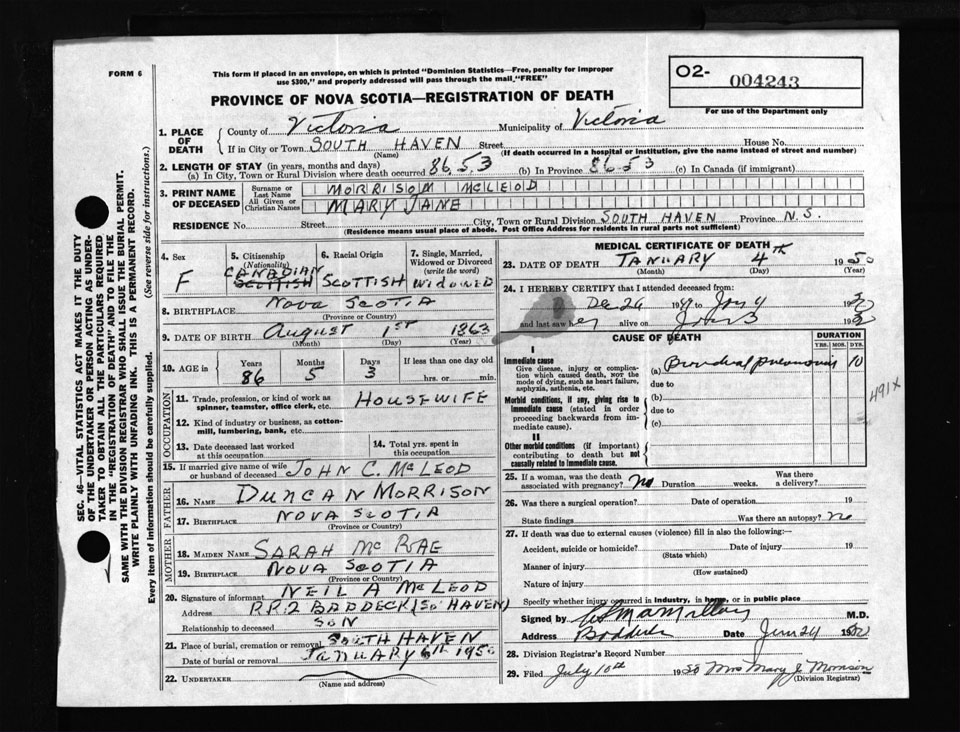 FORM 6
This form if placed in an envelope, on which is printed "Dominion Statistics—Free, penalty for improper
use $300," and properly addressed will pass through the mail "FREE"
O2- 004243
For use of the Department only
PROVINCE OF NOVA SCOTIA—REGISTRATION OF DEATH
1. PLACE OF DEATH
County of Victoria Municipality of Victoria
If in City or Town SOUTH HAVEN Street House No.
(Name) (If death occurred in a hospital or institution, give the name instead of street and number)
2. LENGTH OF STAY (in years, months and days)
(a) In City, Town or Rural Division where death occurred 86.5.3 (b) In Province 86.5.3 (c) In Canada (if immigrant)
3. PRINT NAME OF DECEASED
Surname or Last Name MORRISON MCLEOD
All Given or Christian Names MARY JANE
RESIDENCE No. Street City, Town or Rural Division SOUTH HAVEN Province N.S.
(Residence means usual place of abode. Post Office Address for residents in rural parts not sufficient)
4. Sex F
5. Citizenship (Nationality) CANADIAN SCOTTISH
6. Racial Origin SCOTTISH
7. Single, Married, Widowed or Divorced (write the word) WIDOWED
8. BIRTHPLACE NOVA SCOTIA
(Province or Country)
9. DATE OF BIRTH August 1st 1863
(Month) (Day) (Year)
10. AGE in Years 86 Months 5 Days 3 If less than one day old hrs. or min.
OCCUPATION
11. Trade, profession, or kind of work as spinner, teamster, office clerk, etc. HOUSEWIFE
12. Kind of industry or business, as cotton-mill, lumbering, bank, etc.
13. Date deceased last worked at this occupation
14. Total yrs. spent in this occupation
15. If married give name of wife or husband of deceased JOHN C. MCLEOD
FATHER
16. NAME DUNCAN MORRISON
17. BIRTHPLACE NOVA SCOTIA
(Province or Country)
MOTHER
18. MAIDEN NAME SARAH MC RAE
19. BIRTHPLACE NOVA SCOTIA
(Province or Country)
20. Signature of informant NEIL A MCLEOD
Address R.R.2 BADDECK (SO HAVEN)
Relationship to deceased SON
21. Place of burial, cremation or removal SOUTH HAVEN
Date of burial or removal JANUARY 6th 1950
22. UNDERTAKER
(Name and address)
MEDICAL CERTIFICATE OF DEATH
23. DATE OF DEATH JANUARY 4th 1950
(Month) (Day) (Year)
24. I HEREBY CERTIFY that I attended deceased from:
Dec 26 19 to Jany 4 1950
and last saw her alive on 19
CAUSE OF DEATH
DURATION
YRS. MOS. DYS.
I
Immediate cause
Give disease, injury or complication which caused death, NOT the mode of dying, such as heart failure, asphyxia, asthenia, etc.
(a) Bronchial pneumonia 10
due to
Morbid conditions, if any, giving rise to immediate cause (stated in order proceeding backwards from immediate cause).
(b)
due to
(c)
II
Other morbid conditions (if important) contributing to death but not causally related to immediate cause.
491X
25. If a woman, was the death associated with pregnancy? no Duration weeks. Was there a delivery?
26. Was there a surgical operation? Date of operation 19
State findings Was there an autopsy? no
27. If death was due to external causes (violence) fill in also the following:—
Accident, suicide or homicide? Date of injury 19
(State which)
Manner of injury
(How sustained)
Nature of injury
Specify whether injury occurred in industry, in home, or in public place
Signed by M.D.
Address Baddeck Date 24 1950
28. Division Registrar's Record Number
29. Filed July 10th 1950 Mrs Mary J Morrison
(Division Registrar)
SEC. 46—VITAL STATISTICS ACT MAKES IT THE DUTY
OF THE UNDERTAKER OR PERSON ACTING AS UNDER-
TAKER TO OBTAIN ALL THE PARTICULARS REQUIRED
IN THE "REGISTRATION OF DEATH" AND TO FILE THE
SAME WITH THE DIVISION REGISTRAR WHO SHALL ISSUE THE BURIAL PERMIT.
WRITE PLAINLY WITH UNFADING INK. THIS IS A PERMANENT RECORD.
Every item of information should be carefully supplied. (See reverse side for instructions.)